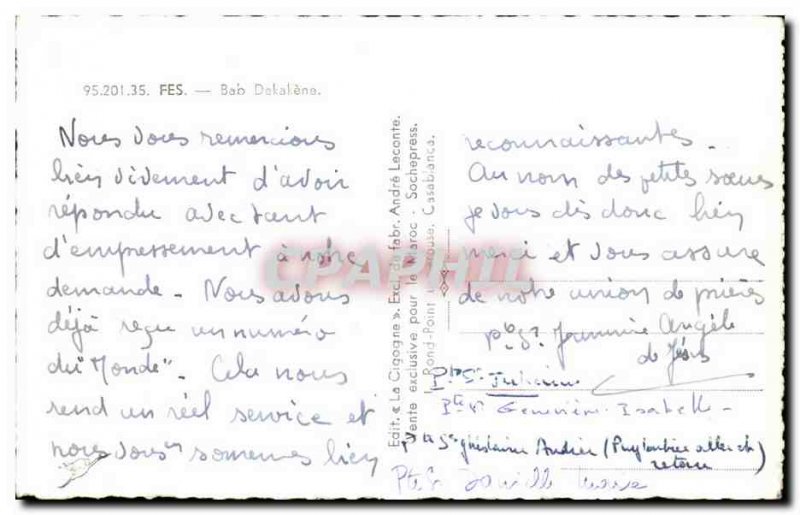 95.201.35. FES. — Bab Dekakène.
Nous vous remercions
bien vivement d'avoir
répondu avec tant
d'empressement à notre
demande. Nous avons
déjà reçu un numéro
du "Monde". Cela nous
rend un réel service et
nous vous en sommes bien
reconnaissantes.
Au nom des petites sœurs
je vous dis donc bien
merci et vous assure
de notre union de prières
pte Sr Jeannine Angèle
de Jésus
Pte Sr
Pte Sr Geneviève Isabelle
Pte Sr Ghislaine Andrée (
retour)
Pte Sr
Edit. « La Cigogne ». Excl. de fabr. André Leconte.
Vente exclusive pour le Maroc - Sochepress.
Rond-Point Casablanca.
CPAPHIL